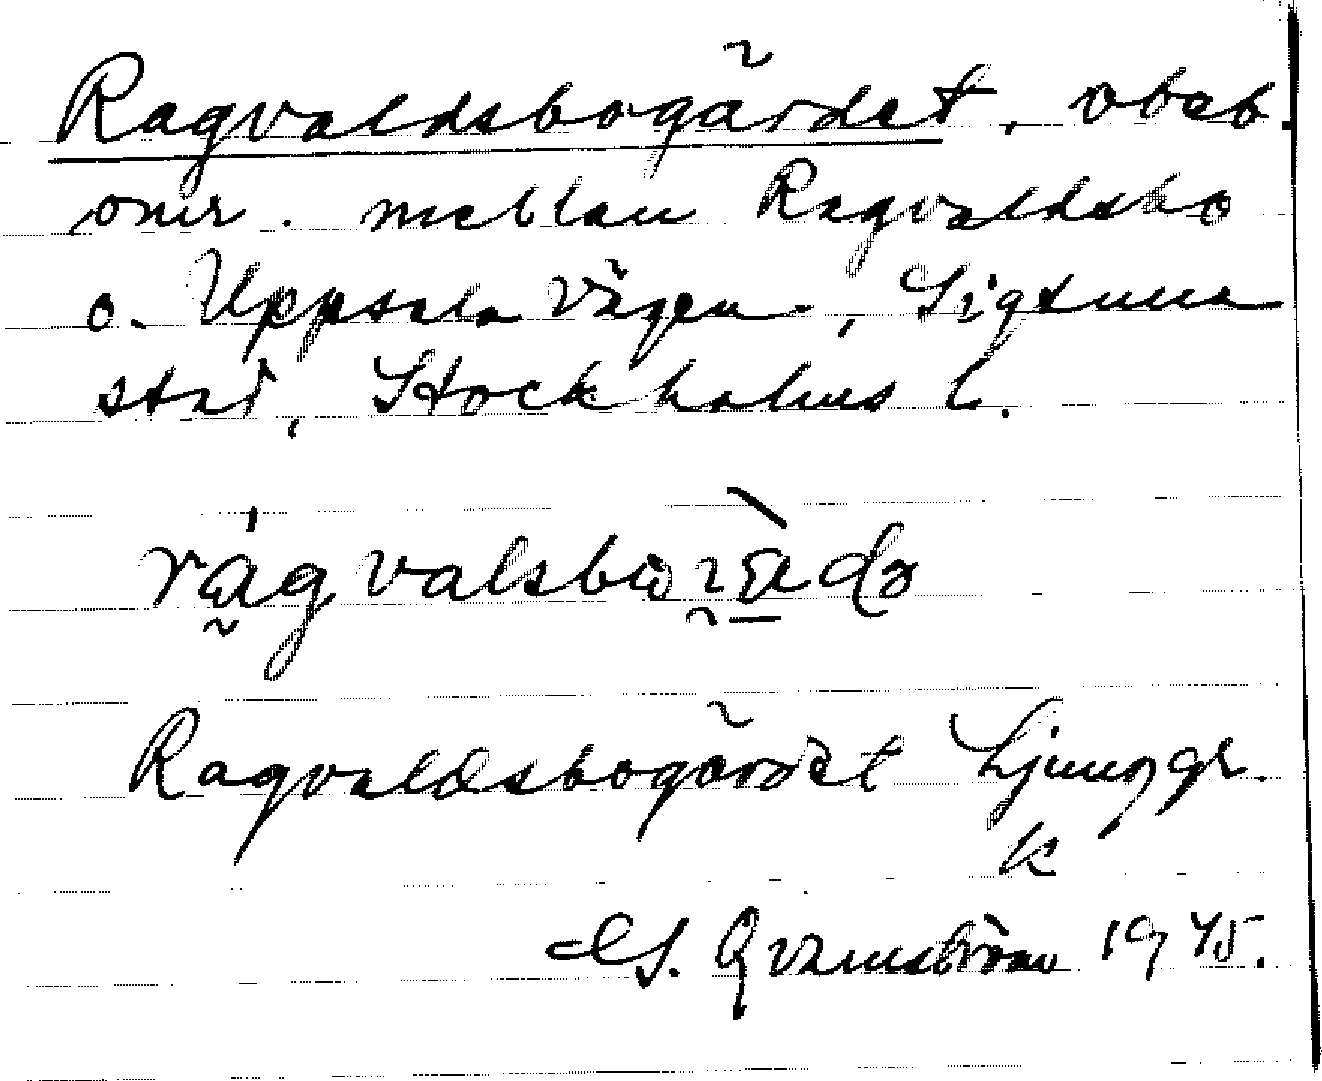 Ragvaldsbogärdet, obeb.
omr. mellan Ragvaldsbo
o. Uppsalavägen, Sigtuna
stad, Stockholms l.
Ragvaldsbogärdet Ljunggr.
k
S. Qvarnström 1945.